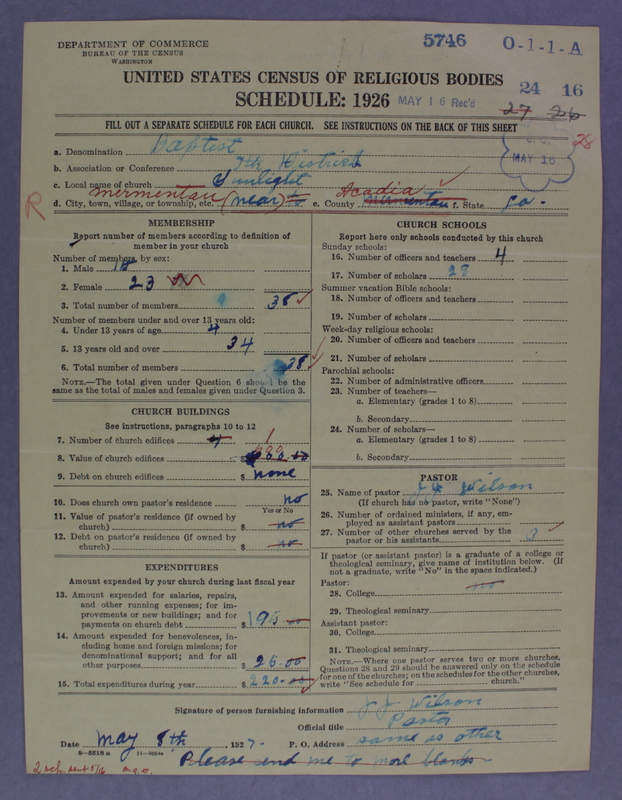 DEPARTMENT OF COMMERCE
BUREAU OF THE CENSUS
WASHINGTON
5746 O-1-1-A
UNITED STATES CENSUS OF RELIGIOUS BODIES
24 16
SCHEDULE: 1926 MAY 16 Rec'd
27 26
FILL OUT A SEPARATE SCHEDULE FOR EACH CHURCH. SEE INSTRUCTIONS ON THE BACK OF THIS SHEET
28
MAY 16
a. Denomination Baptist
b. Association or Conference 7th District
c. Local name of church Sunlight
R
d. City, town, village, or township, etc. Mermentau (near) e. County Acadia Mermentau f. State La.
MEMBERSHIP
Report number of members according to definition of
member in your church
Number of members, by sex:
1. Male 15
2. Female 23
3. Total number of members 38
Number of members under and over 13 years old:
4. Under 13 years of age 4
5. 13 years old and over 34
6. Total number of members 38
NOTE.—The total given under Question 6 should be the
same as the total of males and females given under Question 3.
CHURCH BUILDINGS
See instructions, paragraphs 10 to 12
7. Number of church edifices 4 1
8. Value of church edifices $
9. Debt on church edifices $ none
10. Does church own pastor's residence no
Yes or No
11. Value of pastor's residence (if owned by
church) $ no
12. Debt on pastor's residence (if owned by
church) $ no
EXPENDITURES
Amount expended by your church during last fiscal year
13. Amount expended for salaries, repairs,
and other running expenses; for im-
provements or new buildings; and for
payments on church debt $ 195
14. Amount expended for benevolences, in-
cluding home and foreign missions; for
denominational support; and for all
other purposes $ 25.00
15. Total expenditures during year $ 220.00
CHURCH SCHOOLS
Report here only schools conducted by this church
Sunday schools:
16. Number of officers and teachers 4
17. Number of scholars 27
Summer vacation Bible schools:
18. Number of officers and teachers
19. Number of scholars
Week-day religious schools:
20. Number of officers and teachers
21. Number of scholars
Parochial schools:
22. Number of administrative officers
23. Number of teachers—
a. Elementary (grades 1 to 8)
b. Secondary
24. Number of scholars—
a. Elementary (grades 1 to 8)
b. Secondary
PASTOR
25. Name of pastor Wilson
(If church has no pastor, write "None")
26. Number of ordained ministers, if any, em-
ployed as assistant pastors
27. Number of other churches served by the
pastor or his assistants
If pastor (or assistant pastor) is a graduate of a college or
theological seminary, give name of institution below. (If
not a graduate, write "No" in the space indicated.)
Pastor: no
28. College
29. Theological seminary
Assistant pastor:
30. College
31. Theological seminary
NOTE.—Where one pastor serves two or more churches,
Questions 28 and 29 should be answered only on the schedule
for one of the churches; on the schedules for the other churches,
write "See schedule for church."
Signature of person furnishing information J J Wilson
Official title Pastor
Date May 8th, 1927. P. O. Address same as other
8—5518a
Please send me to more blanks
2 sch. sent 5/16